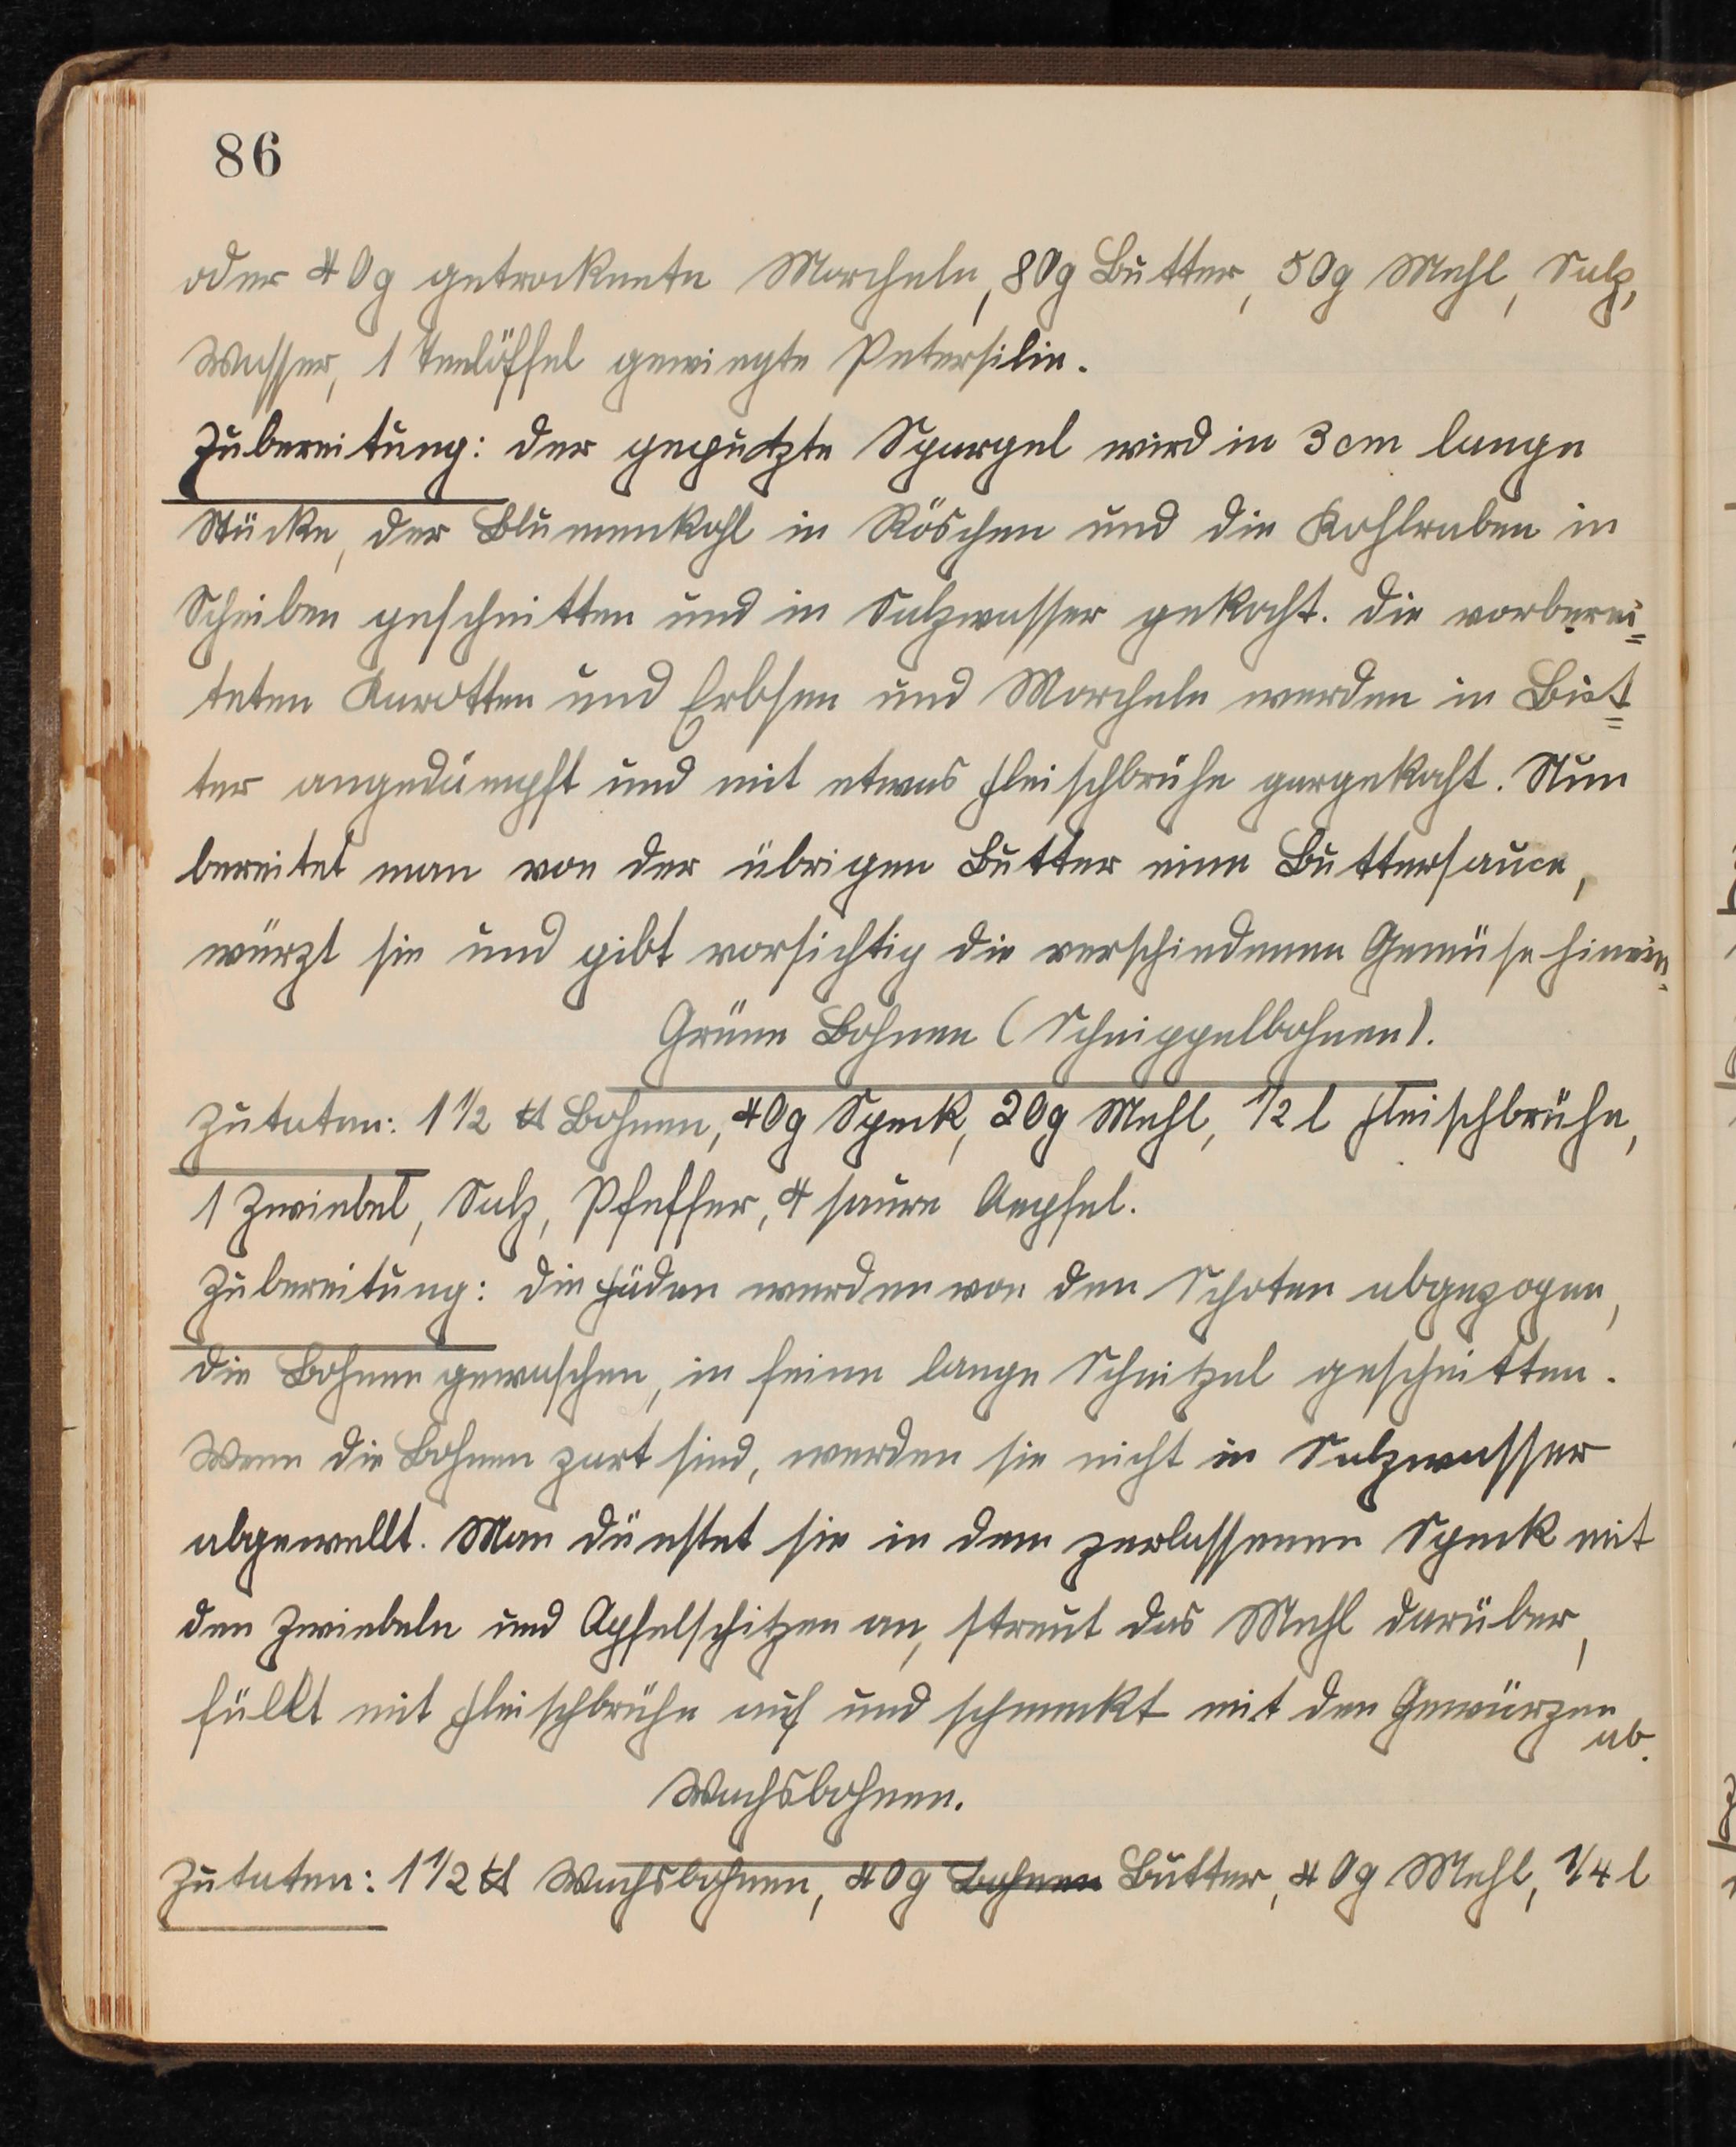 86
oder 40g getrocknete Morcheln, 80g Butter, 50g Mehl, Salz,
Wasser, 1 Teelöffel gewiegte Petersilie.
Zubereitung: der geputzte Spargel wird in 3cm lange
Stücke, der Blumenkohl in Röschen und die Kohlraben in
Scheiben geschnitten und in Salzwasser gekocht. die vorberei=
teten Karotten und Erbsen und Morcheln werden in But=
ter angedämpft und mit etwas Fleischbrühe gargekocht. Nun
bereitet man von der übrigen Butter eine Buttersauce,
würzt sie und gibt vorsichtig die verschiedenen Gemüse hinein.
Grüne Bohnen (Schnippelbohnen).
Zutaten: 1 1/2 ℔ Bohnen, 40g Speck, 20g Mehl, 1/2 l Fleischbrühe,
1 Zwiebel, Salz, Pfeffer, 4 saure Aepfel.
Zubereitung: die Fäden werden von den Schoten abgezogen,
die Bohnen gewaschen, in feine lange Schnitzel geschnitten.
Wenn die Bohnen zart sind, werden sie nicht in Salzwasser
abgewellt. Man dünstet sie in dem zerlassenen Speck mit
den Zwiebeln und Apfelschitzen an, streut das Mehl darüber,
füllt mit Fleischbrühe auf und schmeckt mit den Gewürzen
ab.
Wachsbohnen.
Zutaten: 1 1/2 ℔ Wachsbohnen, 40g Bohnen Butter, 40g Mehl, 1/4 l